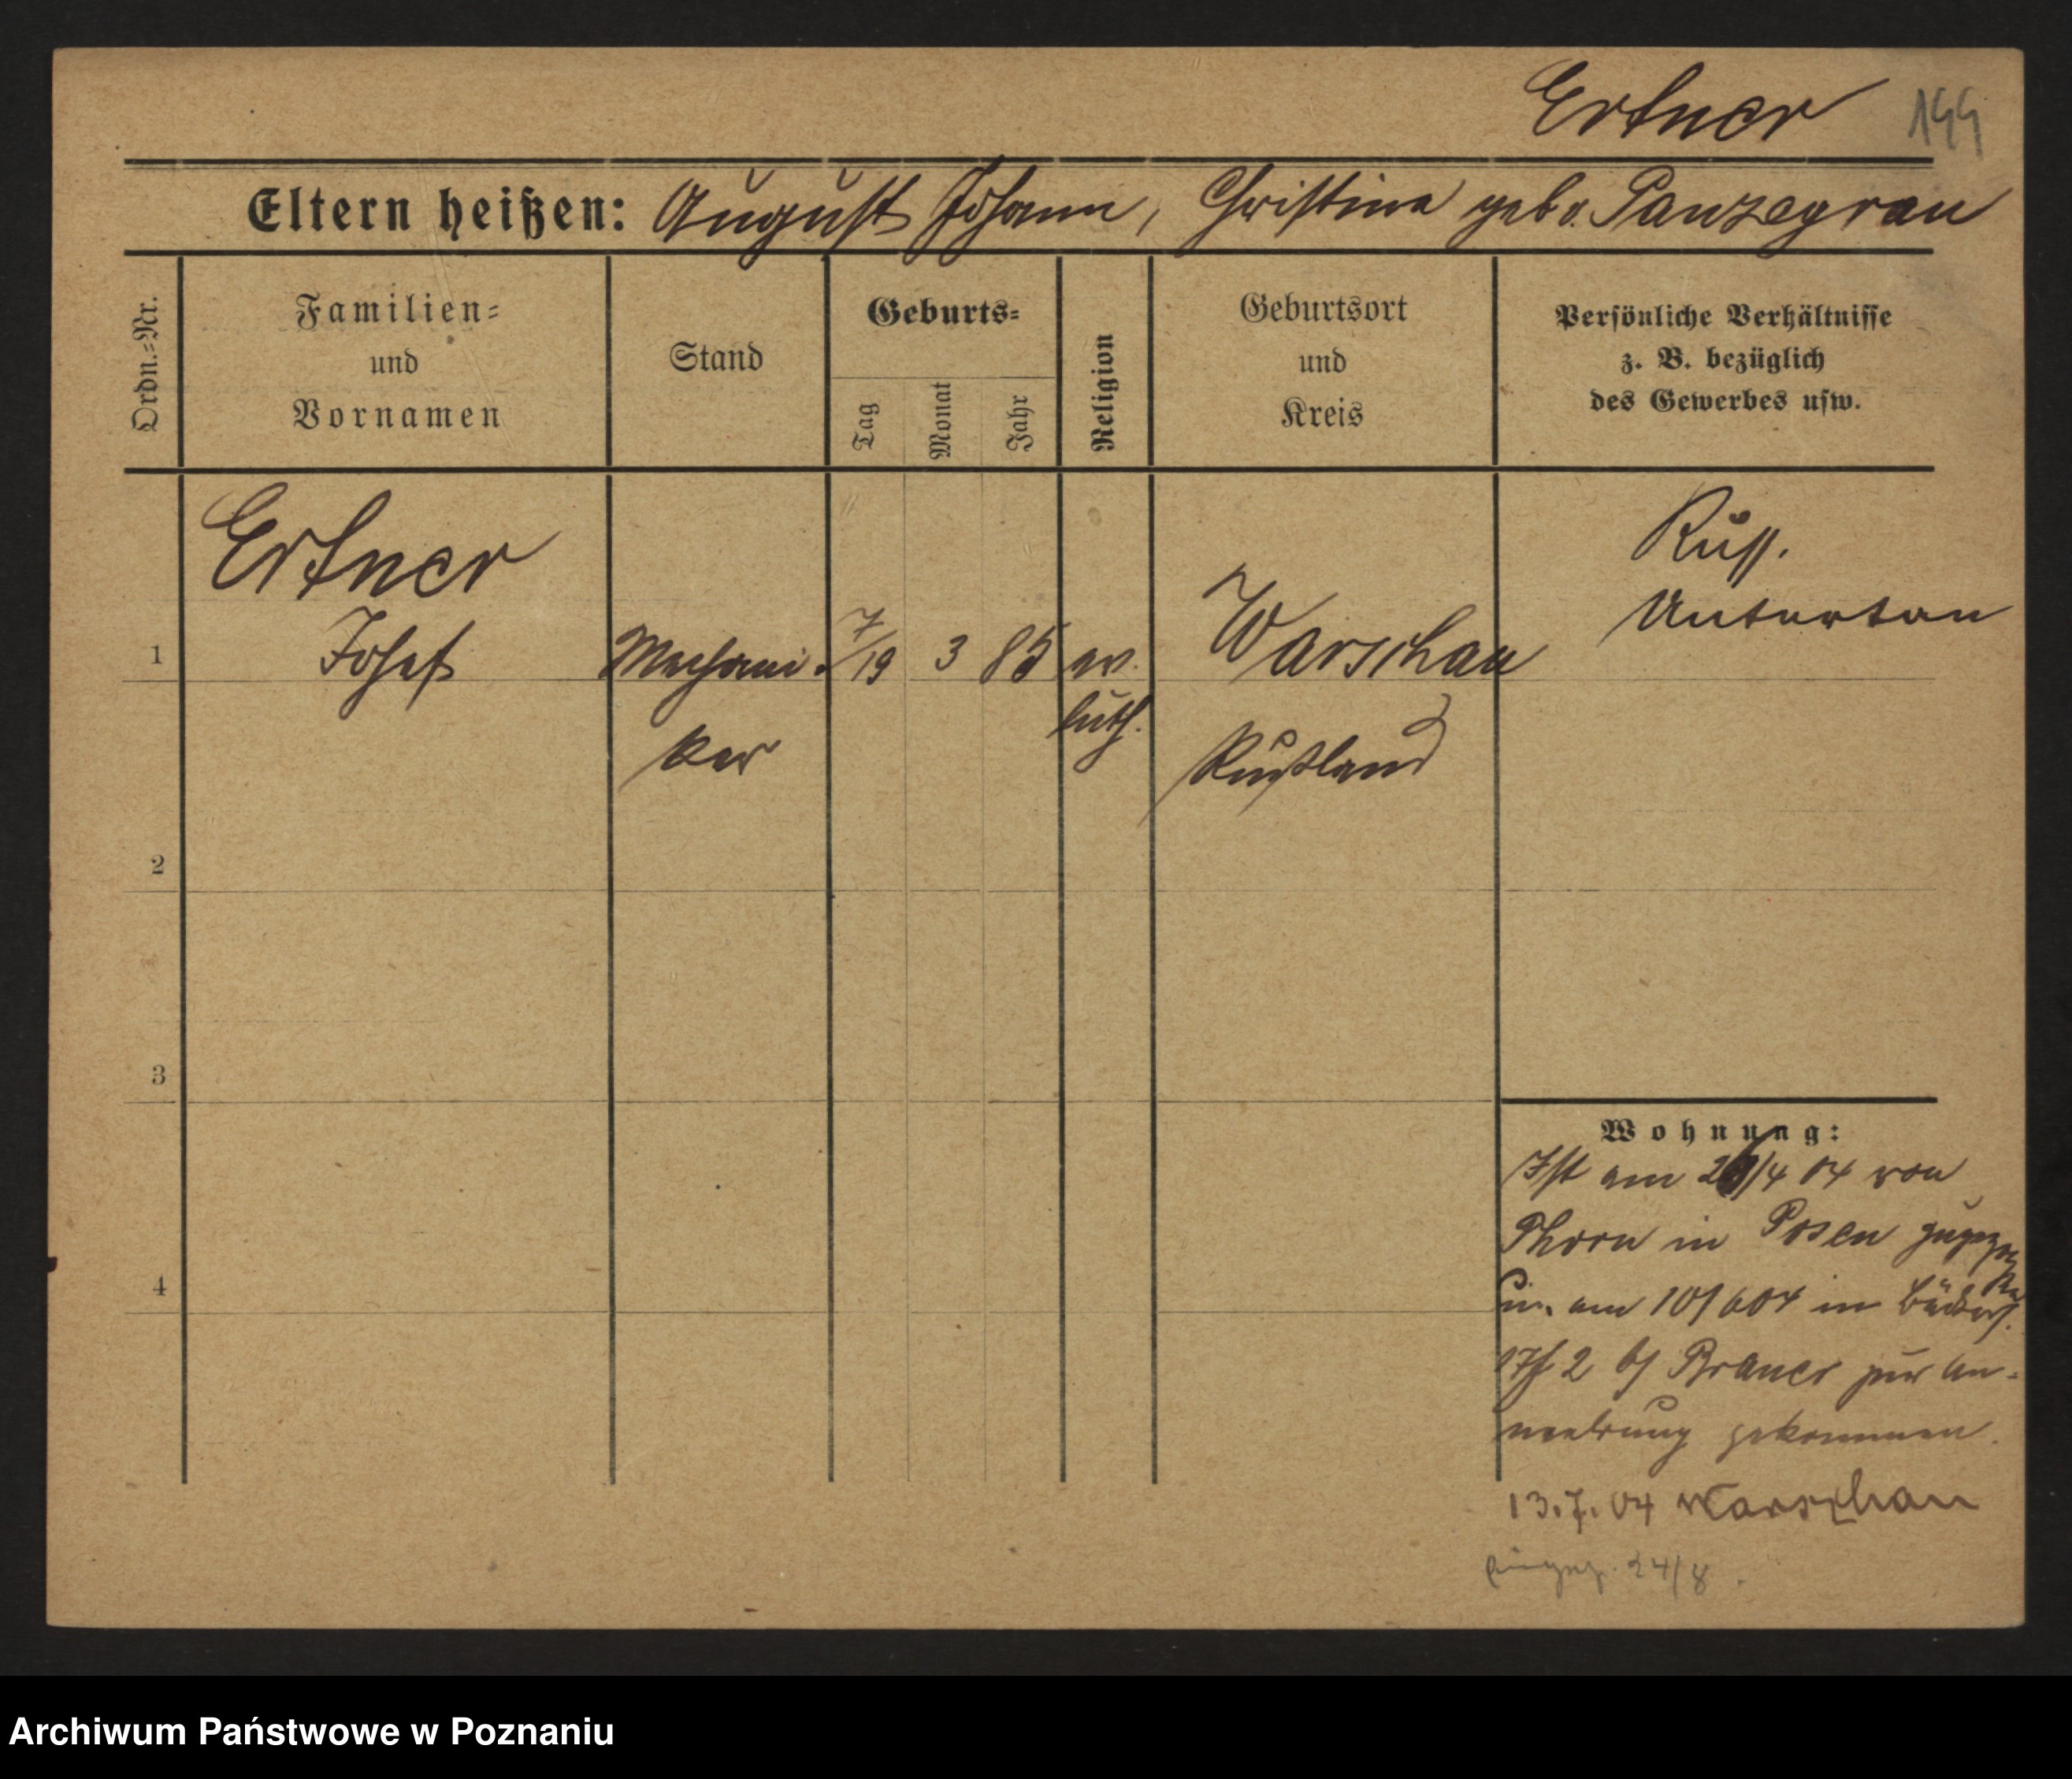 Ertner 199
Eltern heißen: August Johann, Christine geb. Panzegrau
Ordn.=Nr.
Familien=
und
Vornamen
Stand
Geburts=
Tag
Monat
Jahr
Religion
Geburtsort
und
Kreis
Persönliche Verhältnisse
z. B. bezüglich
des Gewerbes usw.
Ertner
1 Josef Mechani- 7/19 3 85 ev. Warschau
luth.
ker
Rußland
Russ.
Untertan
2
3
4
Wohnung:
Ist am 26/4 04 von
Thorn in Posen zugezogen
u. am 10/604 in Bäckers.
17 2 b/ Brauer zur An-
meldung gekommen.
13.7.04 Warschau
24/8.
Archiwum Państwowe w Poznaniu